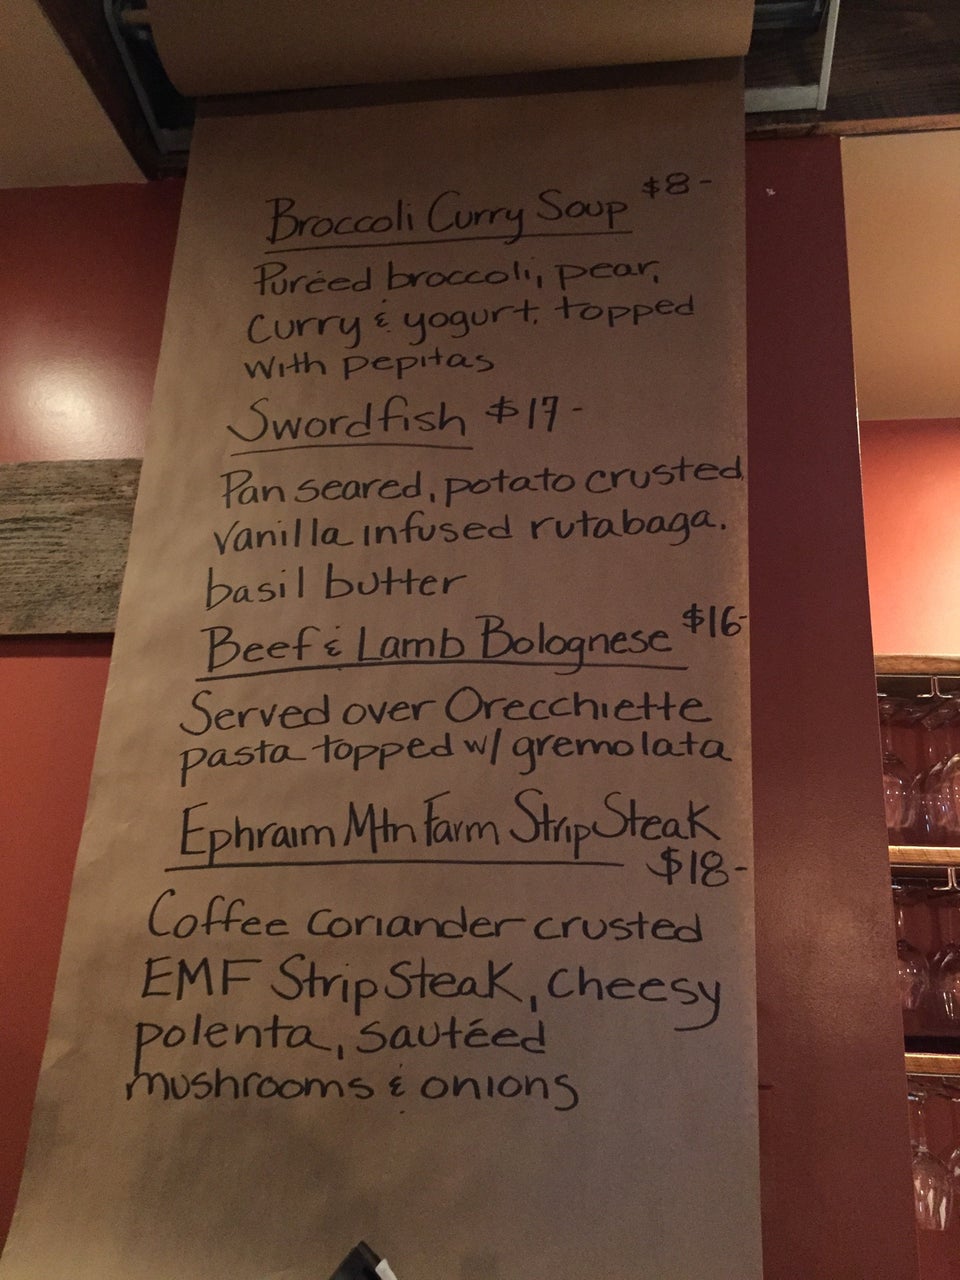 Broccoli Curry Soup $8-
Puréed broccoli, pear,
curry & yogurt, topped
with pepitas
Swordfish $17-
Pan seared, potato crusted,
vanilla infused rutabaga.
basil butter
Beef & Lamb Bolognese $16-
Served over Orecchiette
pasta topped w/ gremolata
Ephraim Mtn Farm Strip Steak
$18-
Coffee coriander crusted
EMF Strip Steak, cheesy
polenta, sautéed
mushrooms & onions